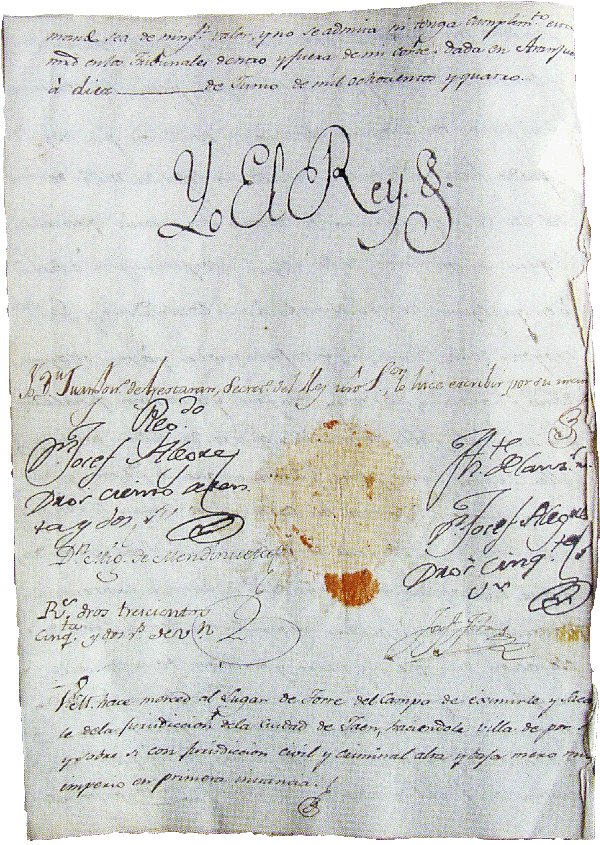 mand sea de ning.n valor, y no se admita ni tenga cumplim.to esta
md en los Tribunales dentro y fuera de mi cor.te dada en Aranjuez
á diez de Junio de mil ochocientos y quatro
Yo El Rey.
Yo D.n Juan Ign. de Ayestaran, Secret.o del Rey nro S.or lo hice escribir por su man
Reg.do
D.n Josef Alegre
Dros ciento
ta y dos r.s
D.n Mig. de Mendinueta
The.te
D.n Josef Alegre
Dros cinq.ta
vn
R.s dros trescientos
cinq.ta y dos r.s de vn
V.M. hace merced al Lugar de Torre del Campo de eximirle y saca
le de la Jurisdiccion de la Ciudad de Jaen, haciendola Villa de por
y sobre si con Jurisdiccion civil y criminal alta y baja mero
imperio en primera instancia.